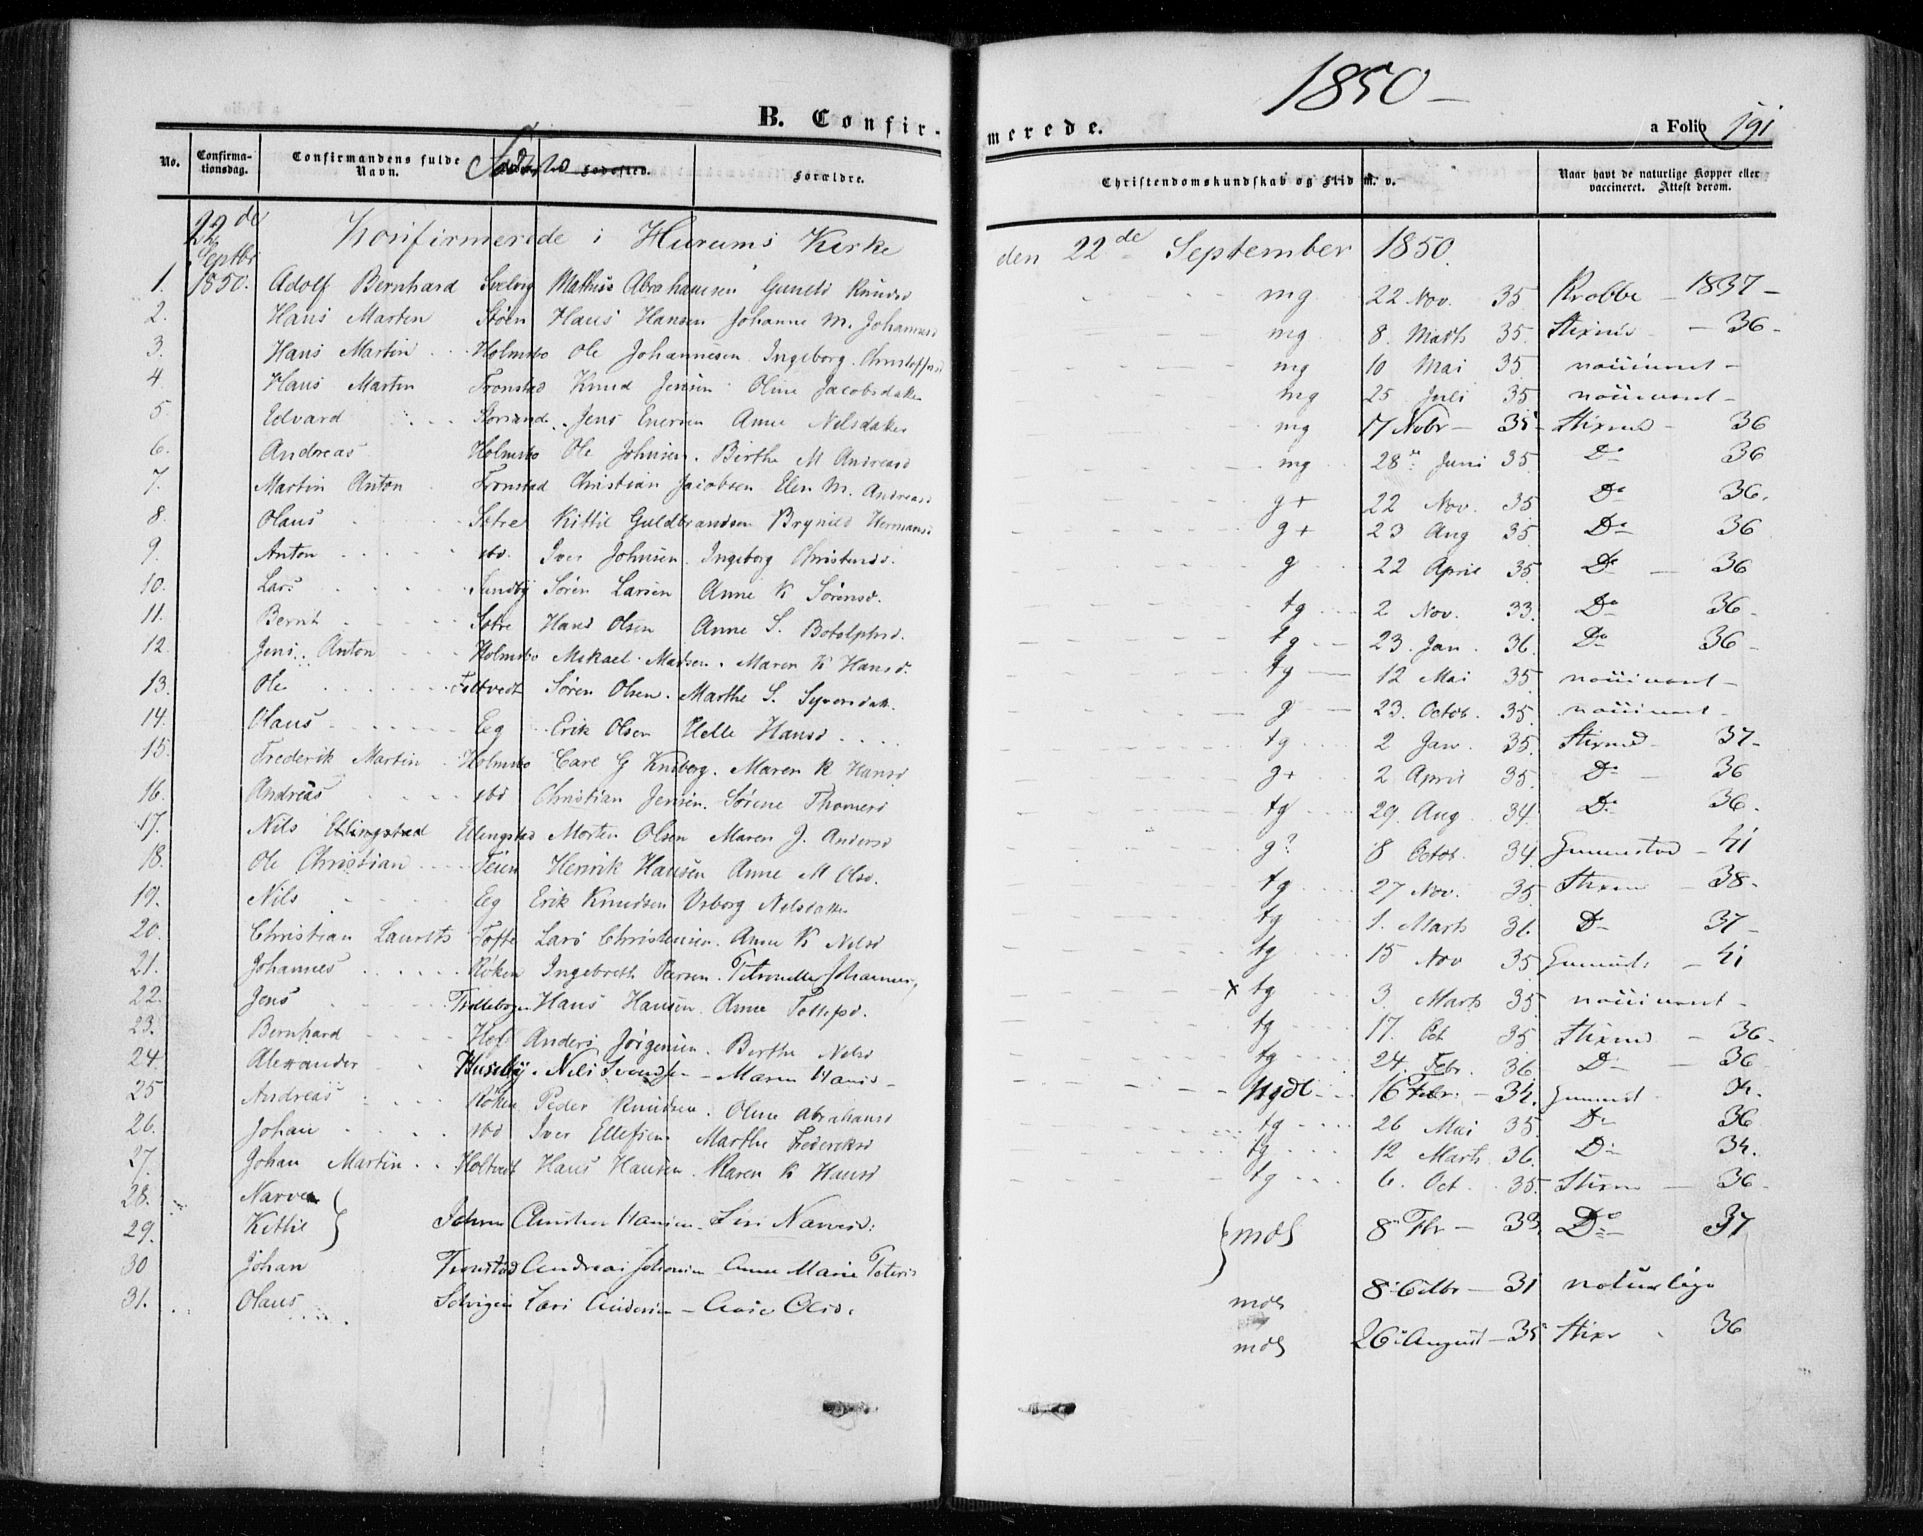 1850
B. Confirmerede.
a Folio 191
No.
Confirmationsdag.
Confirmandens fulde Navn.
Fødested.
Forældre.
Christendomskundskab og Flid m. v.
Naar havt de naturlige Kopper eller vaccineret. Attest derom.
22de Septbr 1850.
Konfirmerede i Hurums Kirke den 22de September 1850.
1. Adolf Bernhard Svelvig Mathias Abrahamsen Gunild Knudsd mg 22 Nov. 35 Krobbe - 1837 -
2. Hans Marten Støen Hans Hansen Johanne M. Johannesd mg 8. Marts 35. - 36 -
3. Hans Martin Holmsbo Ole Johannesen. Ingeborg Christoffersd mg 10 Mai 35
4. Hans Marten Tronstad Knud Jensen Oline Jacobsdatter mg 25 Juli 35
5. Edvard Jens Enersen Anne Nilsdatter mg 17 Nobr - 35 - 36
6. Andreas Holmsbo Ole Johnsen. Birthe M Andreasd mg 28de Juni 35. Do 36
7. Martin Anton Tronstad Christian Jacobsen Elen M. Andreasd g+ 22 Nov. 35 Do 36.
8. Olaus Sætre Kittil Guldbrandsen Brynild Hermansd g+ 23 Aug 35 Do 36
9. Anton ibd. Iver Johnsen. Ingeborg Christensd. g 22 April 35. Do - 36
10. Lars Sundby Søren Larsen Anne K Sørensd. tg 2 Nov. 33. Do 36 -
11. Bernt Sætre Hans Olsen Anne S. Botolphsd. tg 23. Jan. 36. Do 36 -
12. Jens Anton Holmsbo Mikael Madsen. Maren K Hansd. tg 12 Mai 35
13. Ole Søren Olsen. Marthe S. Syversdatt. g 23. Octob. 35.
14. Olaus Eeg Erik Olsen Helle Hansd tg 2 Jan. 35. 37 -
15. Frederik Martin Holmsbo Carl G Maren K Hansd g+ 2 April 35. Do - 36
16. Andreas ibd Christian Jensen. Sørine Thomesd tg 29. Aug. 34. Do 36.
17. Nils Ellingstad Ellingstad Morten Olsen Maren J. Andersd g? 8 Octob. 34. - 41
18. Ole Christian Teien Henrik Hansen Anne M Olsd. tg 27 Nov. 35. - 38.
19. Nils Eeg Erik Knudsen Nilsdatter tg 1. Marts 36. Do 37 -
20. Christian Laurits Tofte Lars Christensen. Anne K Nilsd tg 15 Nov 35 - 41
21. Johannes Røken Ingebreth Petronelle Johannesd. x tg 3. Marts 35.
22. Jens Trollebogen Hans Hansen. Anne Tollefsd. tg 17. Oct 35 - 36.
23. Bernhard Hof Anders Jørgensen. Berthe Nilsd tg 24. Febr. 36. Do 36
24. Alexander Huseby Nils Svendsen - Maren Hansd - Ngdl 16 Febr. - 34.
25 Andreas Røken Peder Knudsen. Oline Abrahamsd tg 26 Mai 35. Do 36
26. Johan ibd Iver Ellefsen Marthe Frederiksd tg 12 Marts 36. Do 34.
27. Johan Martin Holtvedt Hans Hansen. Maren K Hansd tg 6. Oct 35. - 36 -
28. Narve
29. Kittil Hansen - Siri Narvesd: mdl 8 Fbr - 33. Do 37
30 Johan Tronstad Andreas Johansen Anne Marie Petersd mdl 8 Octbr - 31 naturlige
31. Olaus Selvigen Lars Andersen - Aase Olsd. mdl 26 August - 35 36